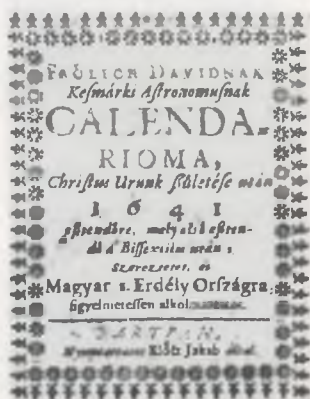 FRÖLICH DAVIDNAK
Kesmárki Astronomusnak
CALENDA-
RIOMA,
Christus Urunk születése után
1641
esztendőre, mely első eszten-
dő a Bissextilis után,
Magyar s. Erdély Országra,
figyelmetessen
BARTFAN,
Klösz Jakab által.